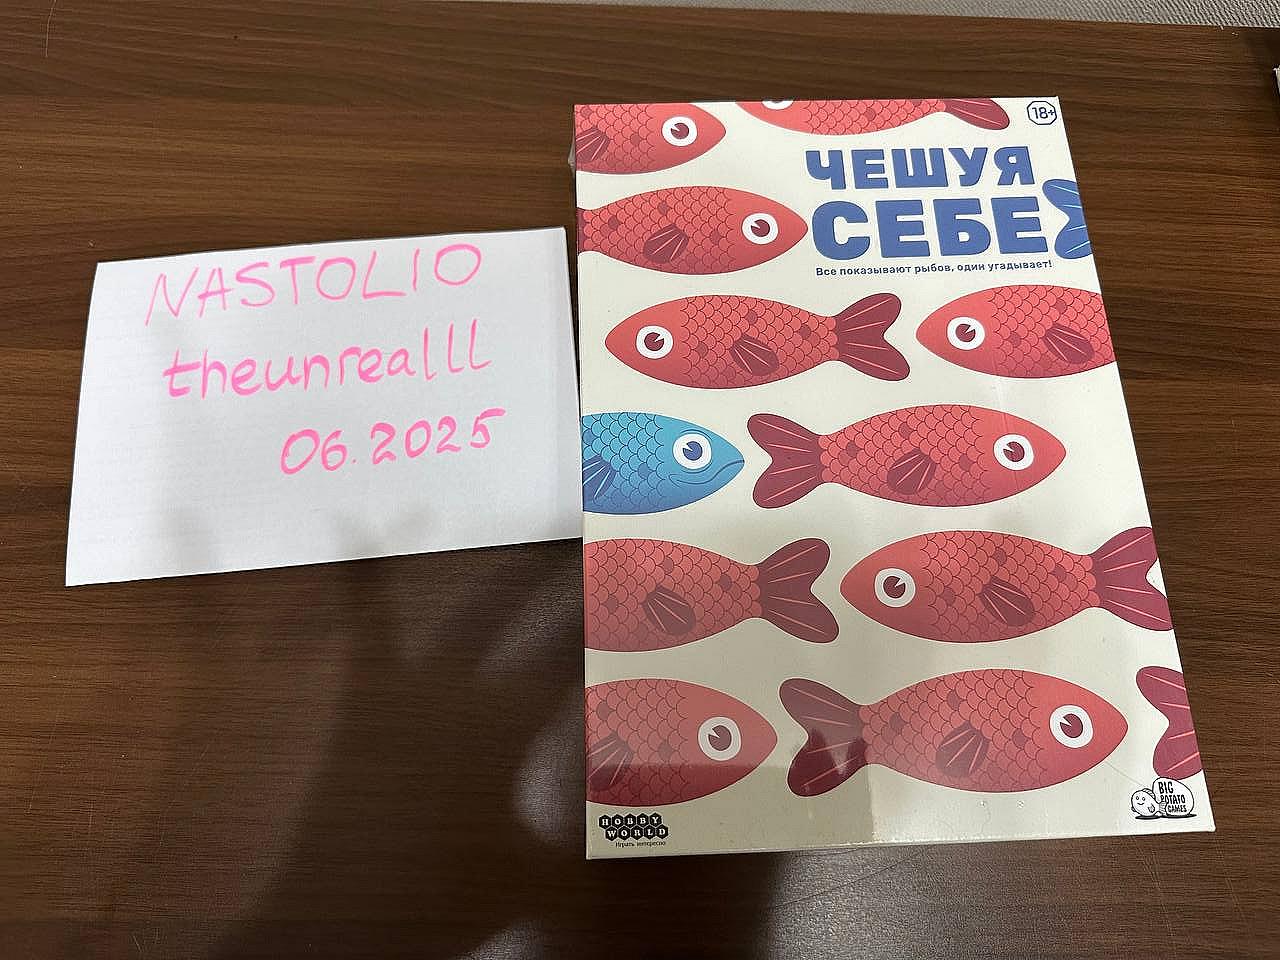 NASTOLIO
theunrealll
06.2025
18+
ЧЕШУЯ
СЕБЕ
Все показывают рыбов, один угадывает!
HOBBY
WORLD
Играть интересно
BIG
POTATO
GAMES